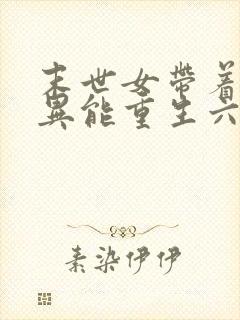 末世女帶着
異能重生六
素染伊伊